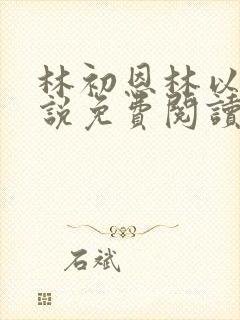 林初恩林以
說免費閱讀
石斌